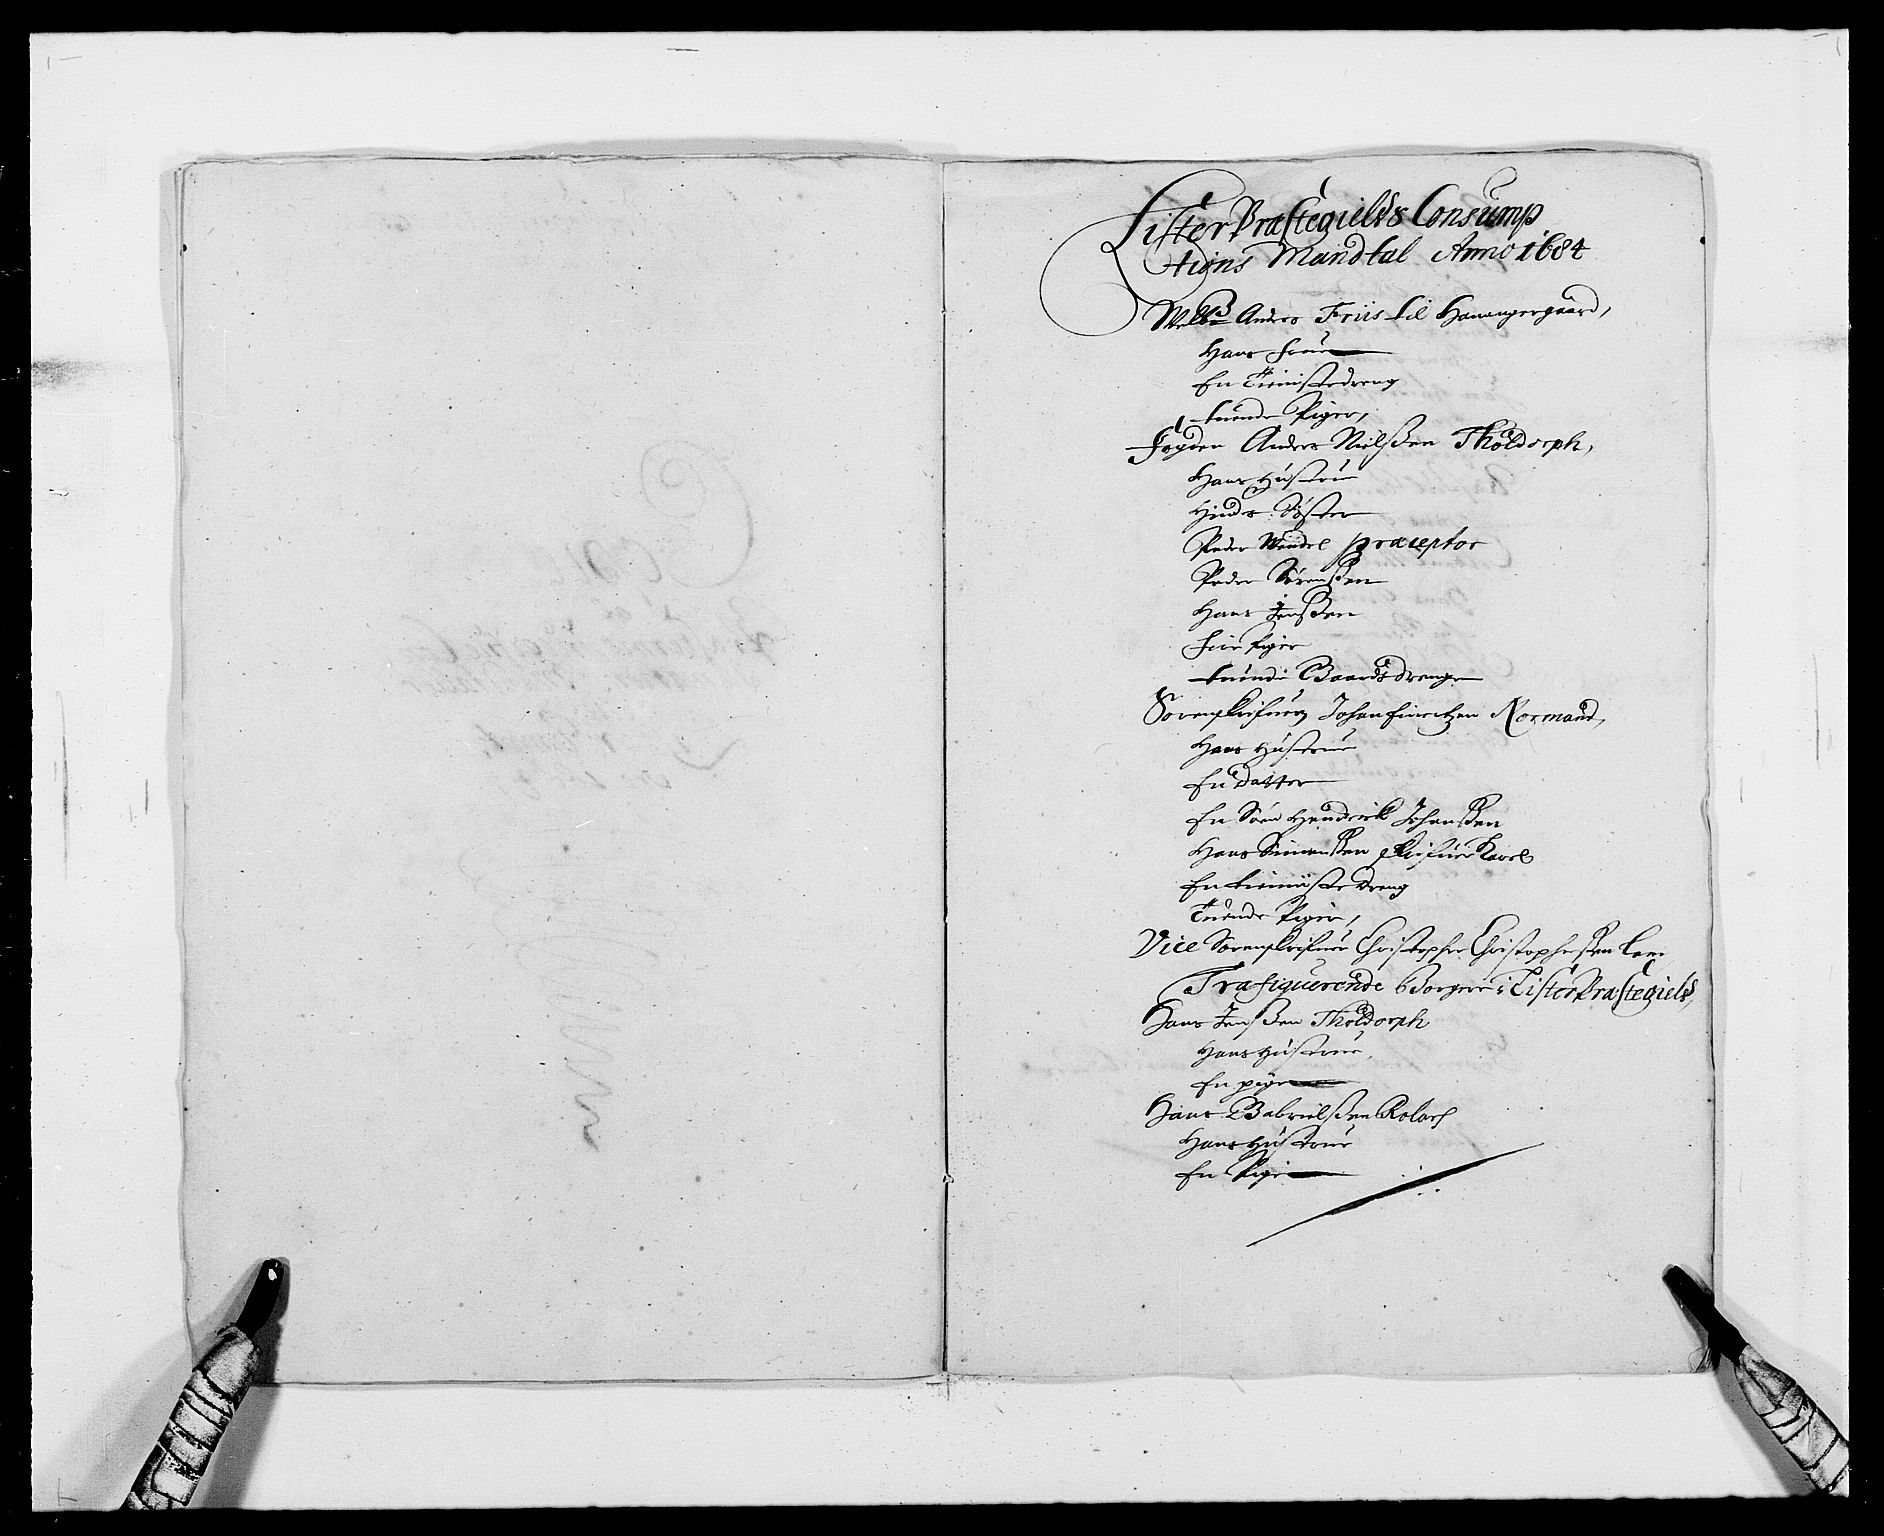 Lister Præstegields Consump
tions Mandtal Anno 1684
Welb: Anders Friis til Hanangergaard,
Hans Frue
En Tienistedreng
tuende Piger,
Fogden Anders Nielsßen Tholdorph,
Hans Hustrue
Hindes Søster
Peder Wendel præceptor
Peder Sørenßen
Hans Jenßen
Fire Piger
tuende Gaardsdrenge
Sorenskrifuer Johan Normand,
Hans Hustrue
En Datter
En Søn Hendrick Johanßen
Hans Simenßen skrifuer Karel
En tienniste dreng
Tuende Piger,
Vice Sorenskrifuer Christopher Christophersßen
Trafiquerende Borgere i Lister Præstegield,
Hans Jenßen Tholdorph
Hans Hustrue,
En pige
Hans Gabrielsßen
Hans Hustrue
En Pige